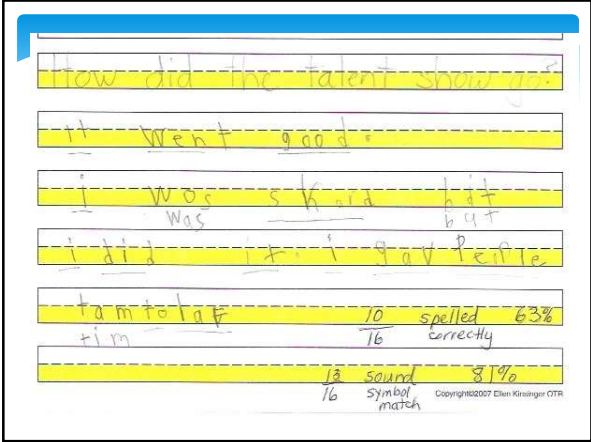 How did the talent show go?
it went good.
i wos skard but
was but
i did it. i gav Peple
tam to laf
tim
10/16 spelled correctly 63%
13/16 sound symbol match 81%
Copyright©2007 Ellen Kirsinger OTR